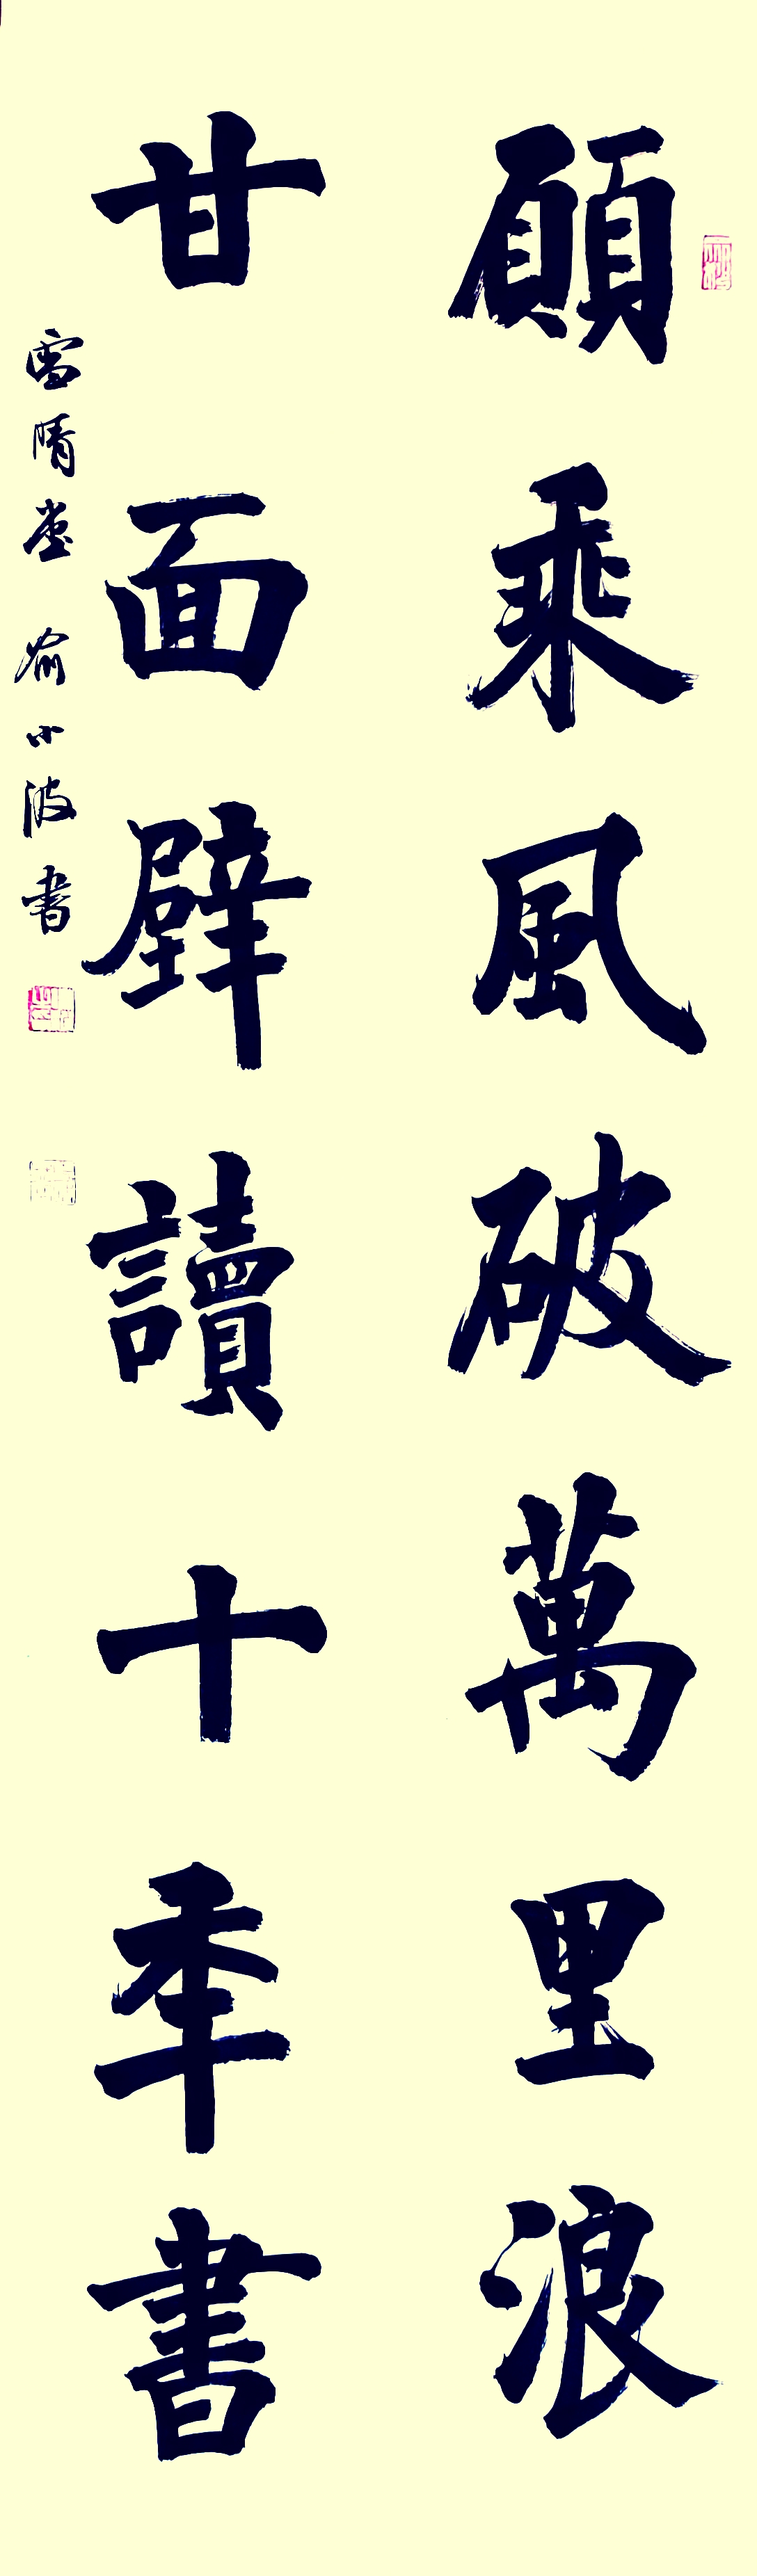 願乘風破萬里浪
甘面壁讀十年書
雪晴堂 俞小波書